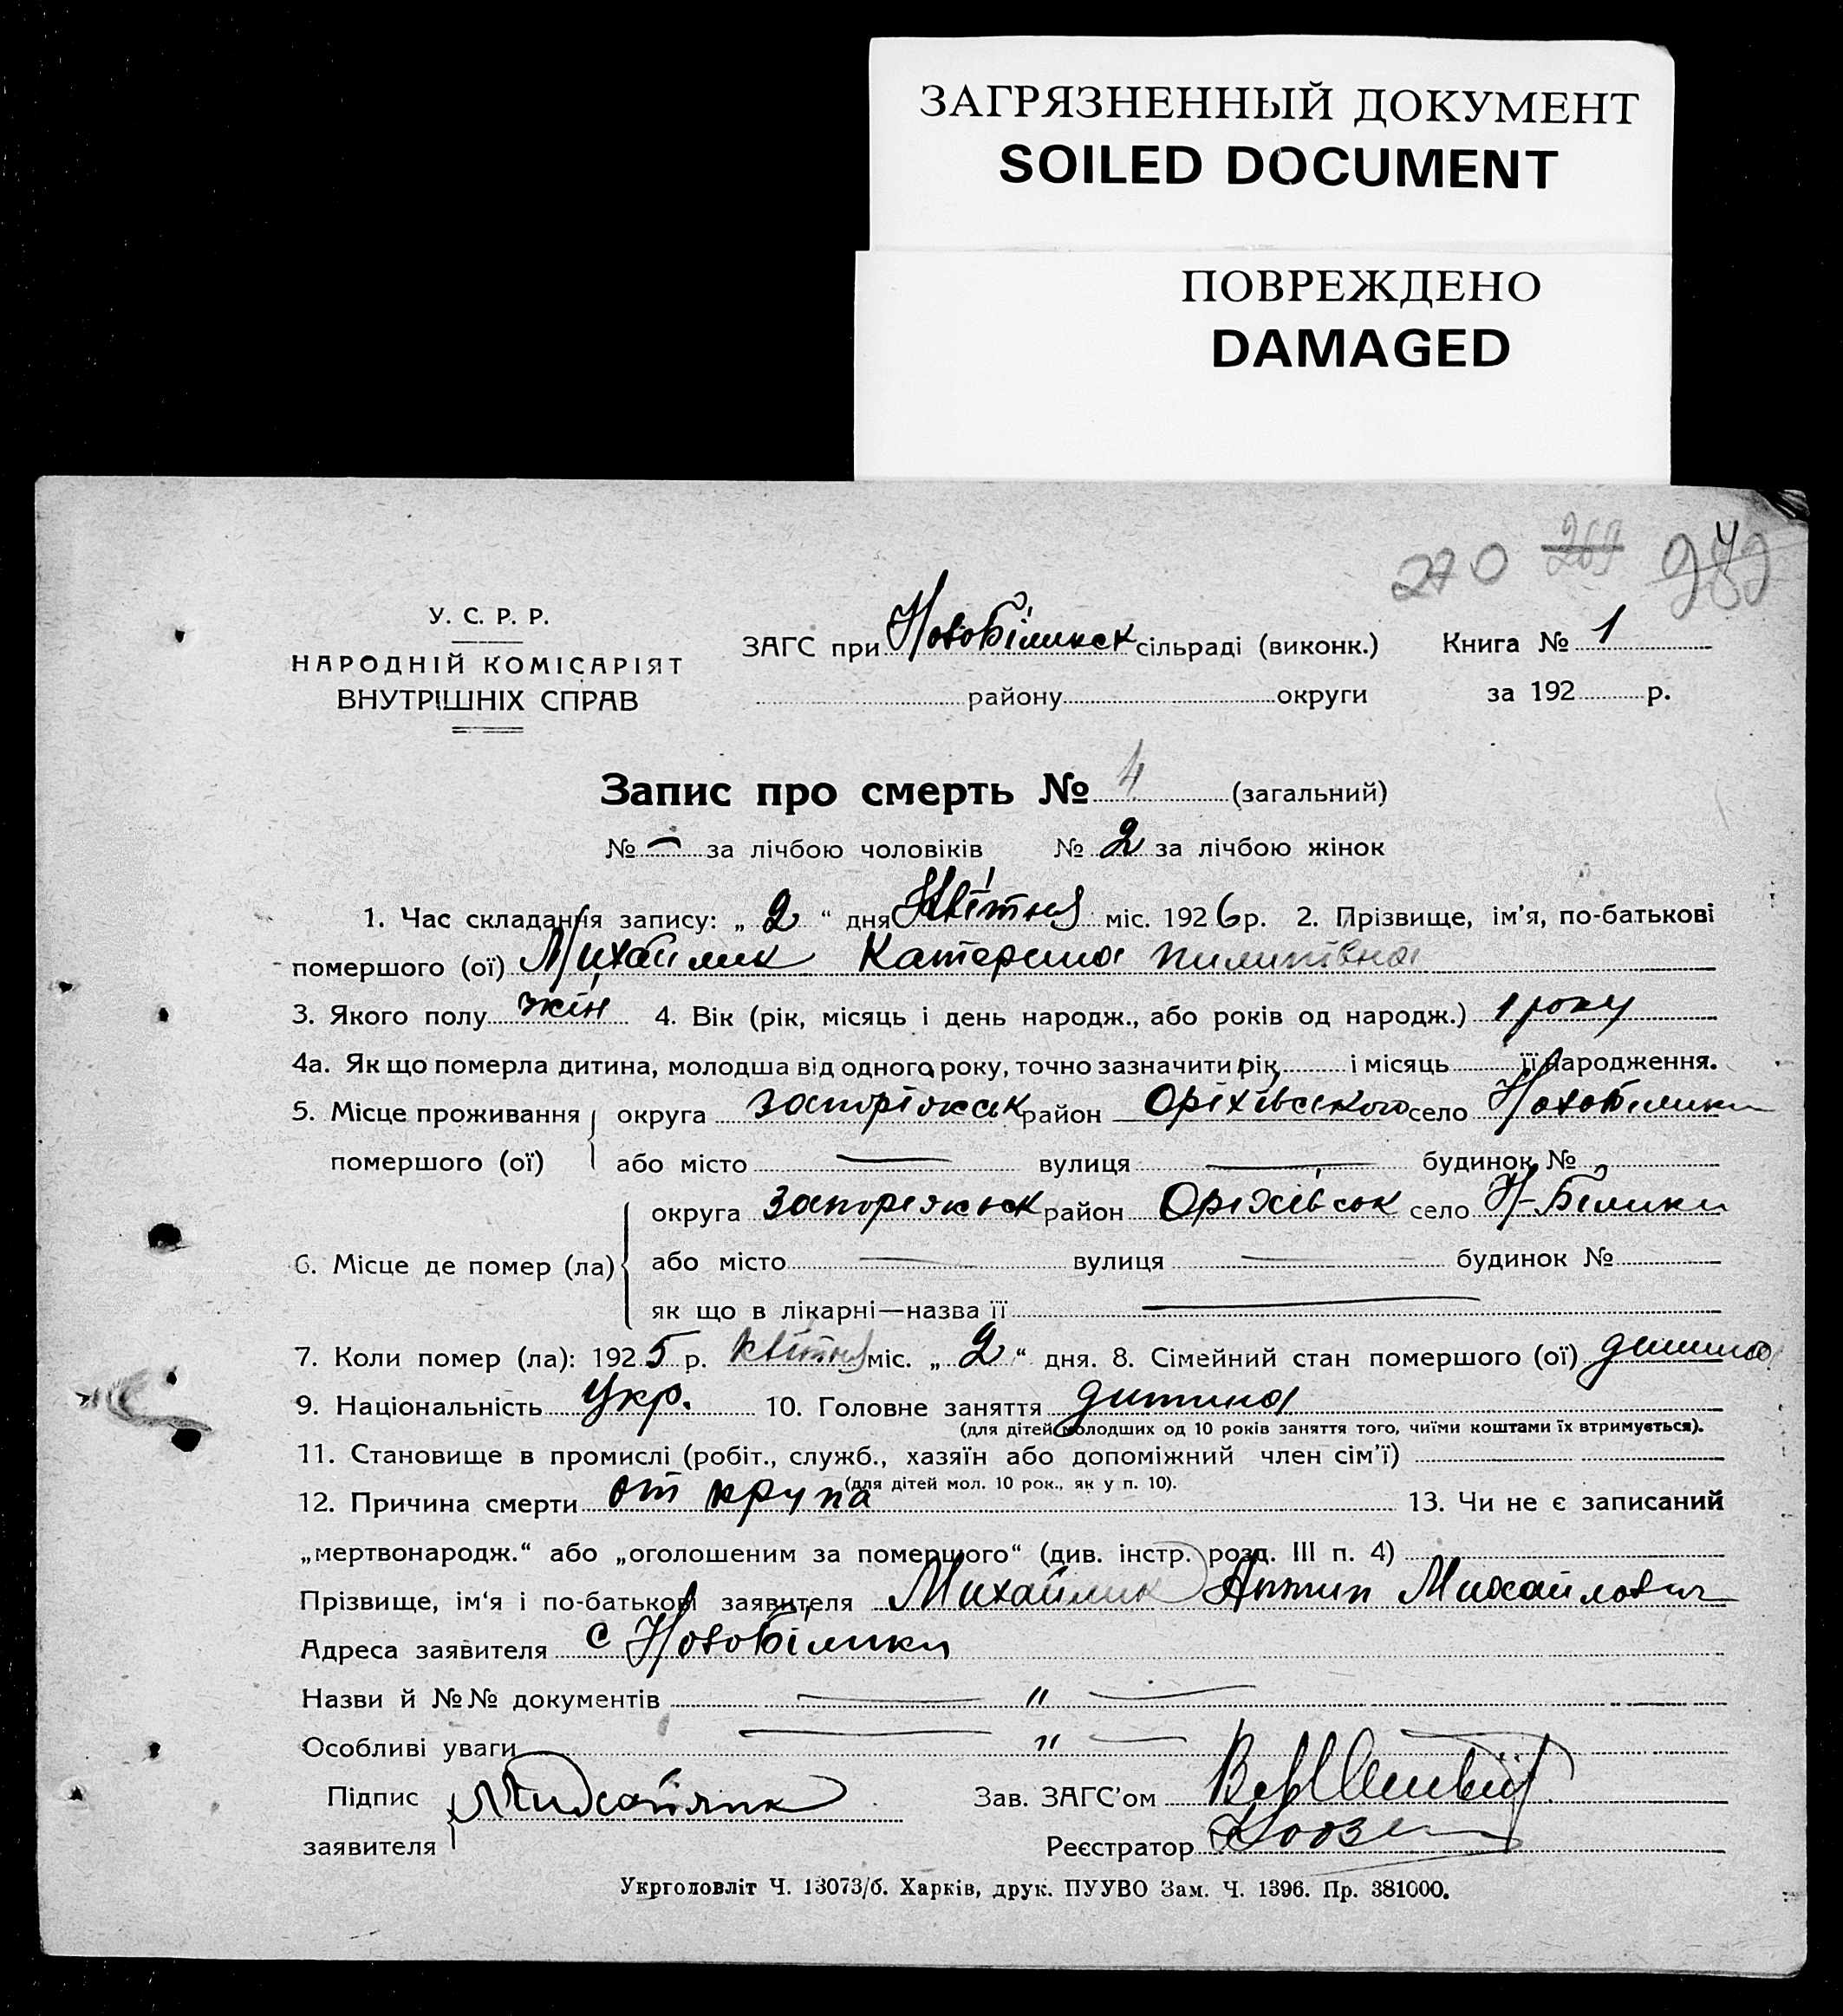 ЗАГРЯЗНЕННЫЙ ДОКУМЕНТ
SOILED DOCUMENT
ПОВРЕЖДЕНО
DAMAGED
270 269
У. С. Р. Р.
НАРОДНІЙ КОМІСАРІЯТ
ВНУТРІШНІХ СПРАВ
ЗАГС при НовоБіликск сільраді (виконк.) Книга № 1
району округи за 192 р.
Запис про смерть № 4 (загальний)
№ — за лічбою чоловіків № 2 за лічбою жінок
1. Час складання запису: „ 2 “ дня Квітня міс. 1926 р. 2. Прізвище, ім'я, по-батькові
помершого (ої) Михайлик Катерина Пилипівна
3. Якого полу жін 4. Вік (рік, місяць і день народж., або років од народж.) 1 року
4а. Як що померла дитина, молодша від одного року, точно зазначити рік і місяць її народження.
5. Місце проживання округа Запоріжськ район Оріхівського село НовоБілики
помершого (ої) або місто — вулиця — будинок №
округа Запоріжськ район Оріхівськ село Н-Білики
6. Місце де помер (ла)
або місто — вулиця — будинок №
як що в лікарні—назва її —
7. Коли помер (ла): 1925 р. квітня міс. „ 2 “ дня. 8. Сімейний стан помершого (ої) дитина
9. Національність Укр. 10. Головне заняття дитина
(для дітей молодших од 10 років заняття того, чиїми коштами їх втримується).
11. Становище в промислі (робіт., служб., хазяїн або допоміжний член сім'ї)
(для дітей мол. 10 рок., як у п. 10).
12. Причина смерти от крупа 13. Чи не є записаний
„мертвонародж.“ або „оголошеним за помершого“ (див. інстр. розд. III п. 4)
Прізвище, ім‘я і по-батькові заявителя Михайлик Антип Михайлович
Адреса заявителя с НовоБілики
Назви й №№ документів — " —
Особливі уваги — " —
Підпис Михайлик Зав. ЗАГС'ом
заявителя Реєстратор
Укрголовліт Ч. 13073/б. Харків, друк. ПУУВО Зам. Ч. 1396. Пр. 381000.